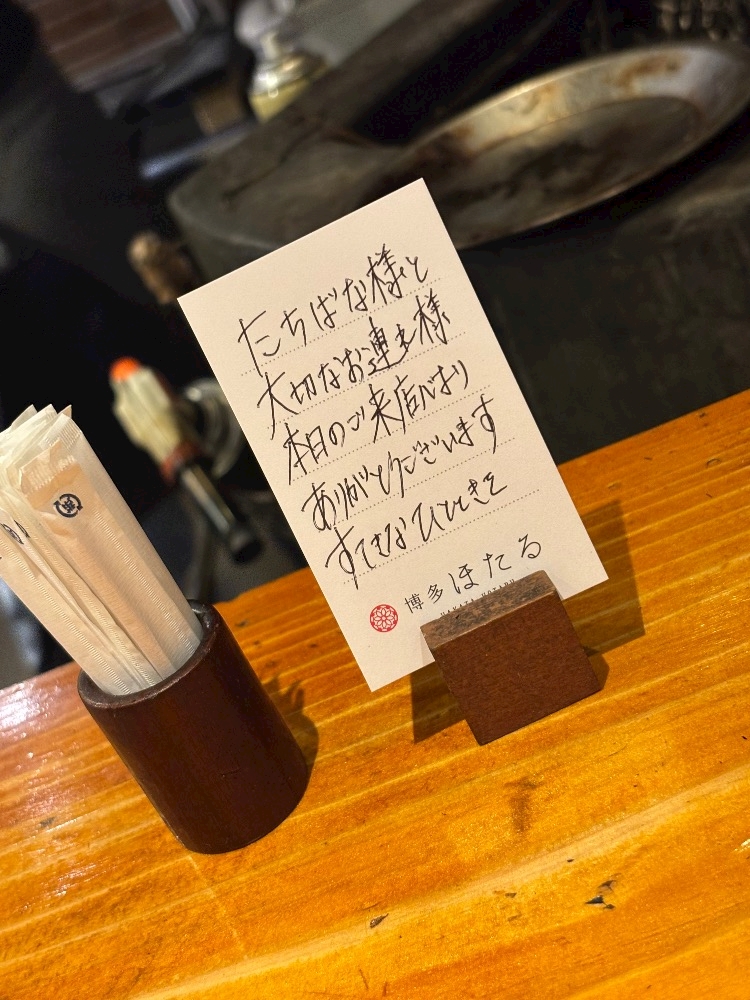 たちばな様と
大切なお連れ様
本日のご来店心より
ありがとうございます
すてきなひとときを
博多ほたる
HAKATA HOTARU